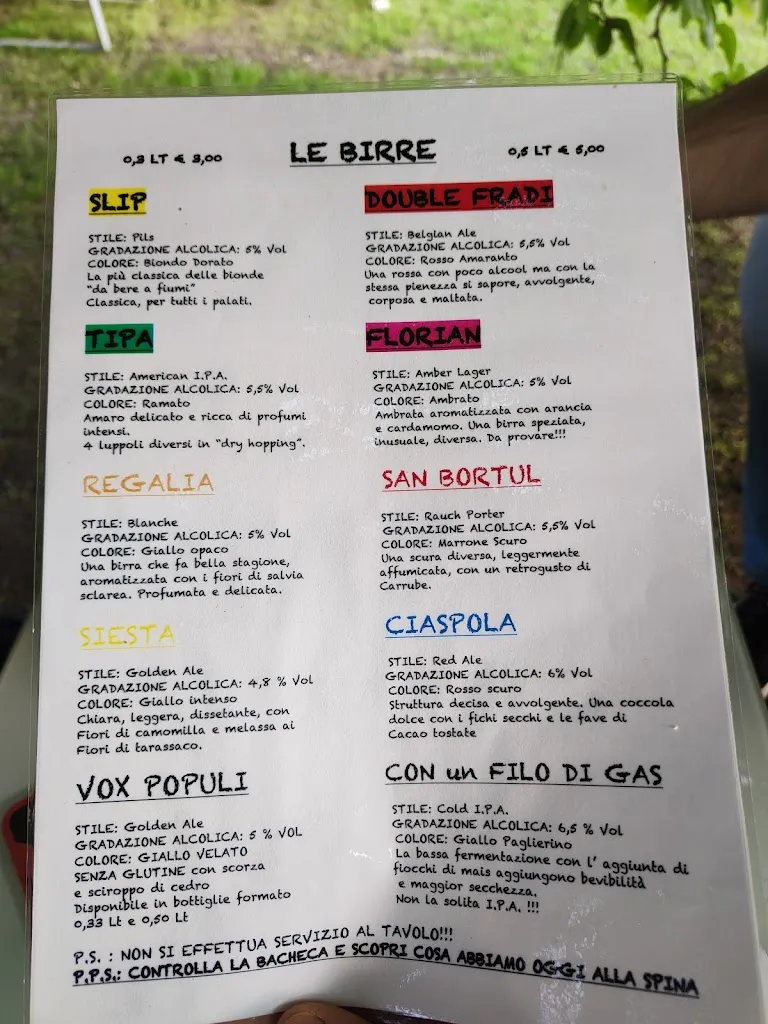 0,3 LT € 3,00
LE BIRRE
0,5 LT € 5,00
SLIP
STILE: Pils
GRADAZIONE ALCOLICA: 5% Vol
COLORE: Biondo Dorato
La più classica delle bionde
"da bere a fiumi"
Classica, per tutti i palati.
TIPA
STILE: American I.P.A.
GRADAZIONE ALCOLICA: 5,5% Vol
COLORE: Ramato
Amaro delicato e ricca di profumi
intensi.
4 luppoli diversi in "dry hopping".
REGALIA
STILE: Blanche
GRADAZIONE ALCOLICA: 5% Vol
COLORE: Giallo opaco
Una birra che fa bella stagione,
aromatizzata con i fiori di salvia
sclarea. Profumata e delicata.
SIESTA
STILE: Golden Ale
GRADAZIONE ALCOLICA: 4,8 % Vol
COLORE: Giallo intenso
Chiara, leggera, dissetante, con
Fiori di camomilla e melassa ai
Fiori di tarassaco.
VOX POPULI
STILE: Golden Ale
GRADAZIONE ALCOLICA: 5 % VOL
COLORE: GIALLO VELATO
SENZA GLUTINE con scorza
e sciroppo di cedro
Disponibile in bottiglie formato
0,33 Lt e 0,50 Lt
DOUBLE FRADI
STILE: Belgian Ale
GRADAZIONE ALCOLICA: 5,5% Vol
COLORE: Rosso Amaranto
Una rossa con poco alcool ma con la
stessa pienezza si sapore, avvolgente,
corposa e maltata.
FLORIAN
STILE: Amber Lager
GRADAZIONE ALCOLICA: 5% Vol
COLORE: Ambrato
Ambrata aromatizzata con arancia
e cardamomo. Una birra speziata,
inusuale, diversa. Da provare!!!
SAN BORTUL
STILE: Rauch Porter
GRADAZIONE ALCOLICA: 5,5% Vol
COLORE: Marrone Scuro
Una scura diversa, leggermente
affumicata, con un retrogusto di
Carrube.
CIASPOLA
STILE: Red Ale
GRADAZIONE ALCOLICA: 6% Vol
COLORE: Rosso scuro
Struttura decisa e avvolgente. Una coccola
dolce con i fichi secchi e le fave di
Cacao tostate
CON un FILO DI GAS
STILE: Cold I.P.A.
GRADAZIONE ALCOLICA: 6,5 % Vol
COLORE: Giallo Paglierino
La bassa fermentazione con l' aggiunta di
fiocchi di mais aggiungono bevibilità
e maggior secchezza.
Non la solita I.P.A. !!!
P.S. : NON SI EFFETTUA SERVIZIO AL TAVOLO!!!
P.P.S.: CONTROLLA LA BACHECA E SCOPRI COSA ABBIAMO OGGI ALLA SPINA